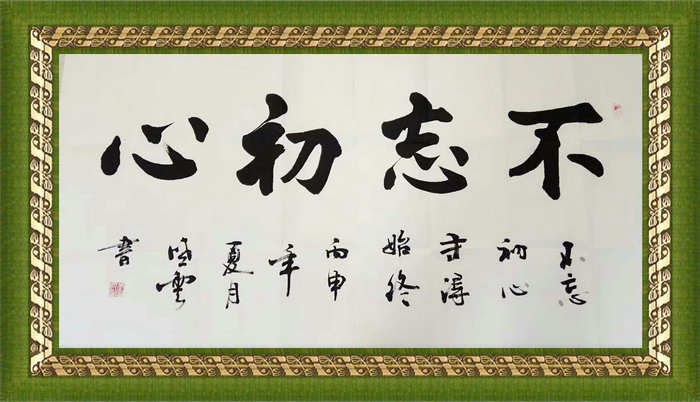 不忘初心
不忘
初心
方得
始终
丙申
年
夏月
書